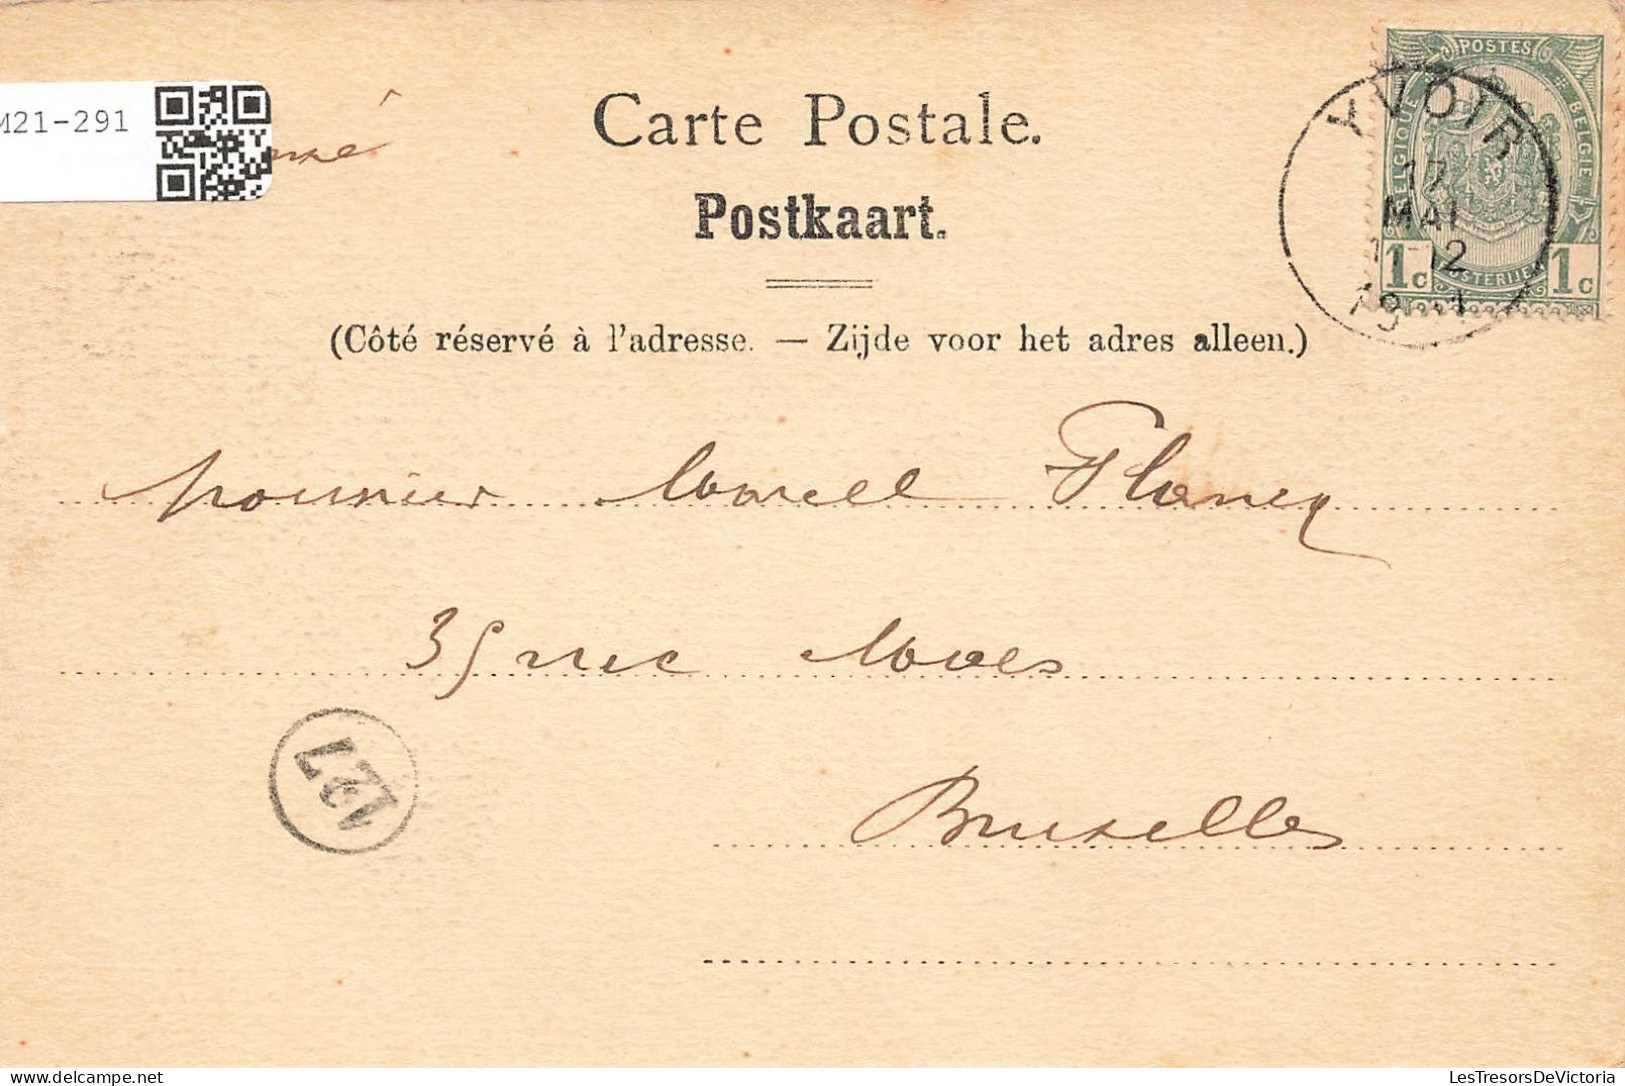 M21-291
Carte Postale.
Postkaart.
(Côté réservé à l'adresse. — Zijde voor het adres alleen.)
POSTES
BELGIQUE
BELGIE
POSTERIJEN
1c 1c
YVOIR
17
MAI
11-12
Monsieur Marcel Plancq
35 rue
Bruxelles
127
delcampe.net
LesTresorsDeVictoria